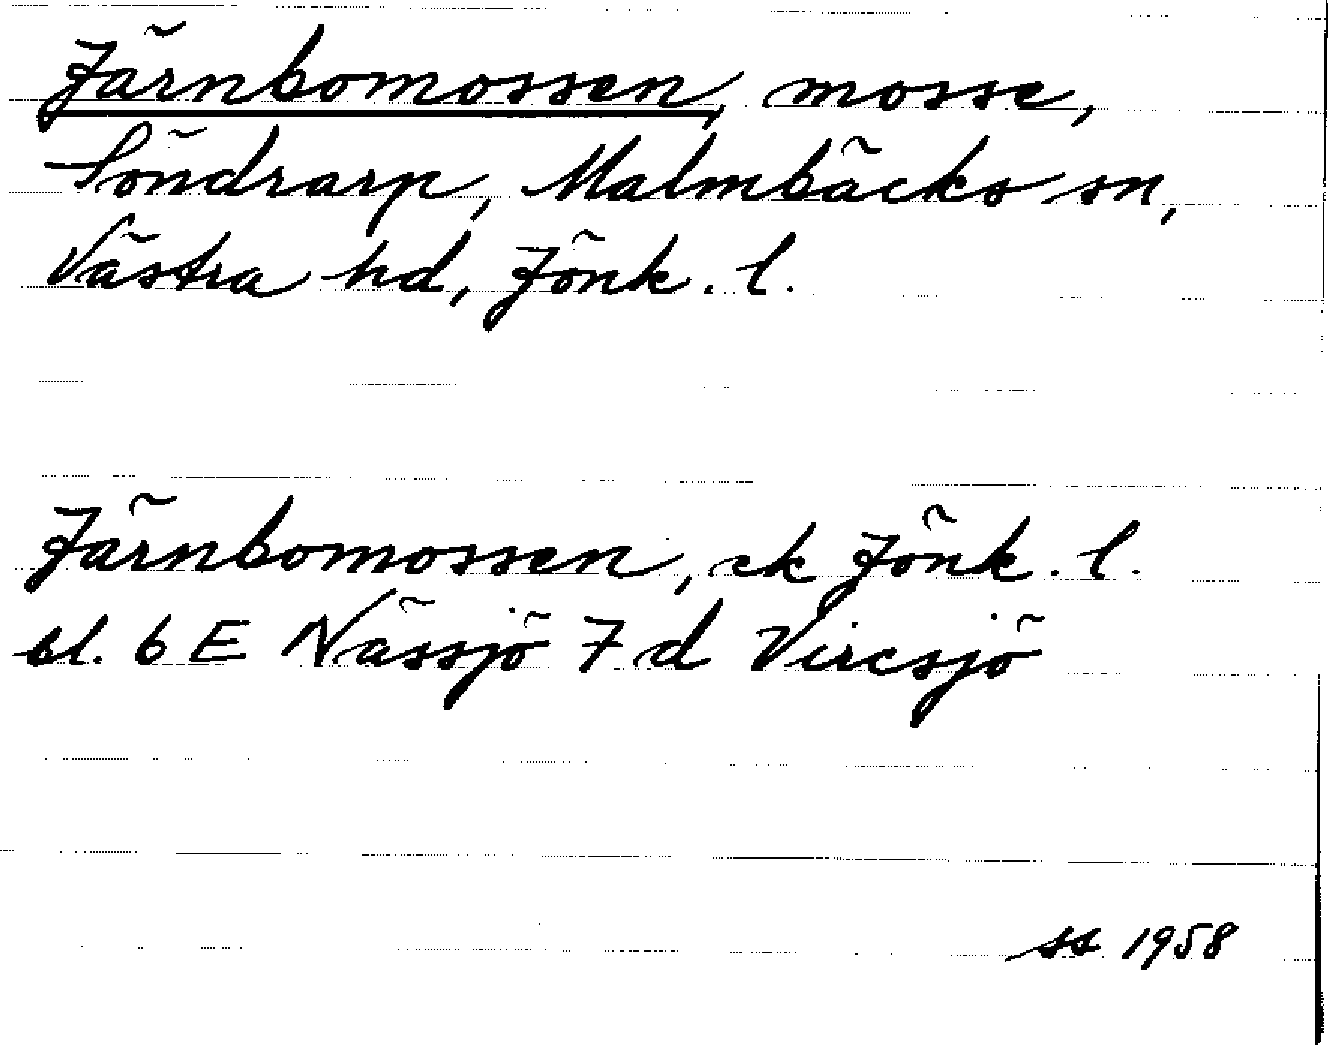 Järnbomossen, mosse,
Söndrarp, Malmbäcks sn,
Västra hd, Jönk. l.
Järnbomossen, ek Jönk. l.
bl. 6 E Nässjö 7 d Vircsjö
SS 1958